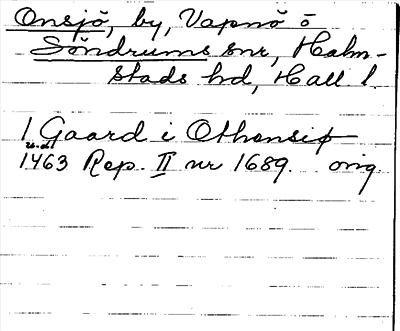 Onsjö, by, Vapnö ö
Söndrums snr, Halm-
stads hd, Hall l.
1 Gaard i Othensiø
u.d.
1463 Rep. II nr 1689. orig